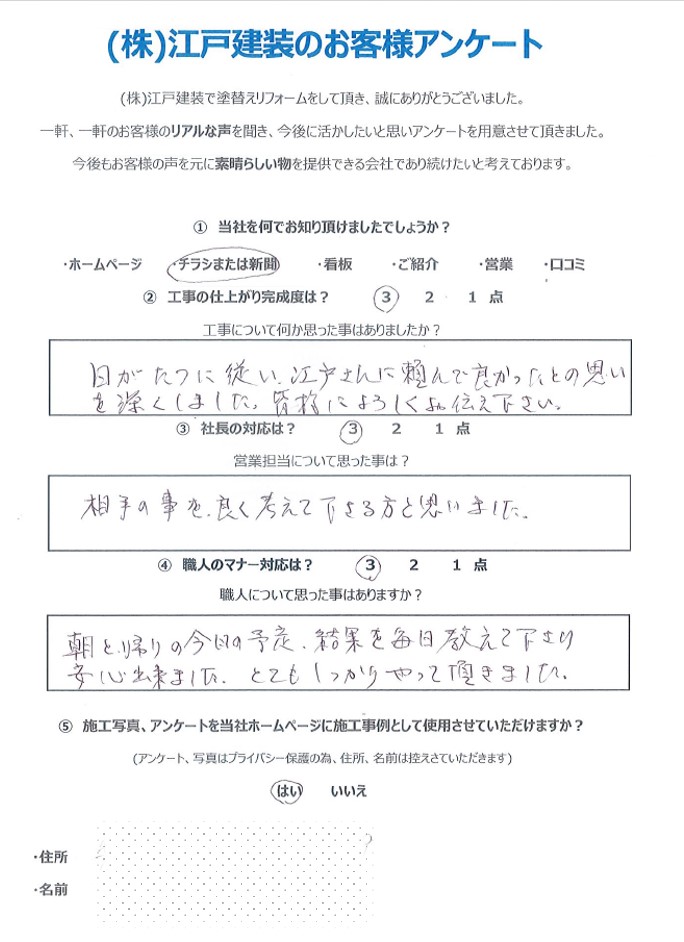 (株)江戸建装のお客様アンケート
(株)江戸建装で塗替えリフォームをして頂き、誠にありがとうございました。
一軒、一軒のお客様のリアルな声を聞き、今後に活かしたいと思いアンケートを用意させて頂きました。
今後もお客様の声を元に素晴らしい物を提供できる会社であり続けたいと考えております。
① 当社を何でお知り頂けましたでしょうか？
・ホームページ ・チラシまたは新聞 ・看板 ・ご紹介 ・営業 ・口コミ
② 工事の仕上がり完成度は？ 3 2 1 点
工事について何か思った事はありましたか？
日がたつに従い、江戸さんに頼んで良かったとの思い
を深くしました。皆様によろしくお伝え下さい。
③ 社長の対応は？ 3 2 1 点
営業担当について思った事は？
相手の事を、良く考えて下さる方と思いました。
④ 職人のマナー対応は？ 3 2 1 点
職人について思った事はありますか？
朝と帰りの今日の予定、結果を毎日教えて下さり
安心出来ました。とてもしっかりやって頂きました。
⑤ 施工写真、アンケートを当社ホームページに施工事例として使用させていただけますか？
(アンケート、写真はプライバシー保護の為、住所、名前は控えさていただきます)
はい いいえ
・住所
・名前